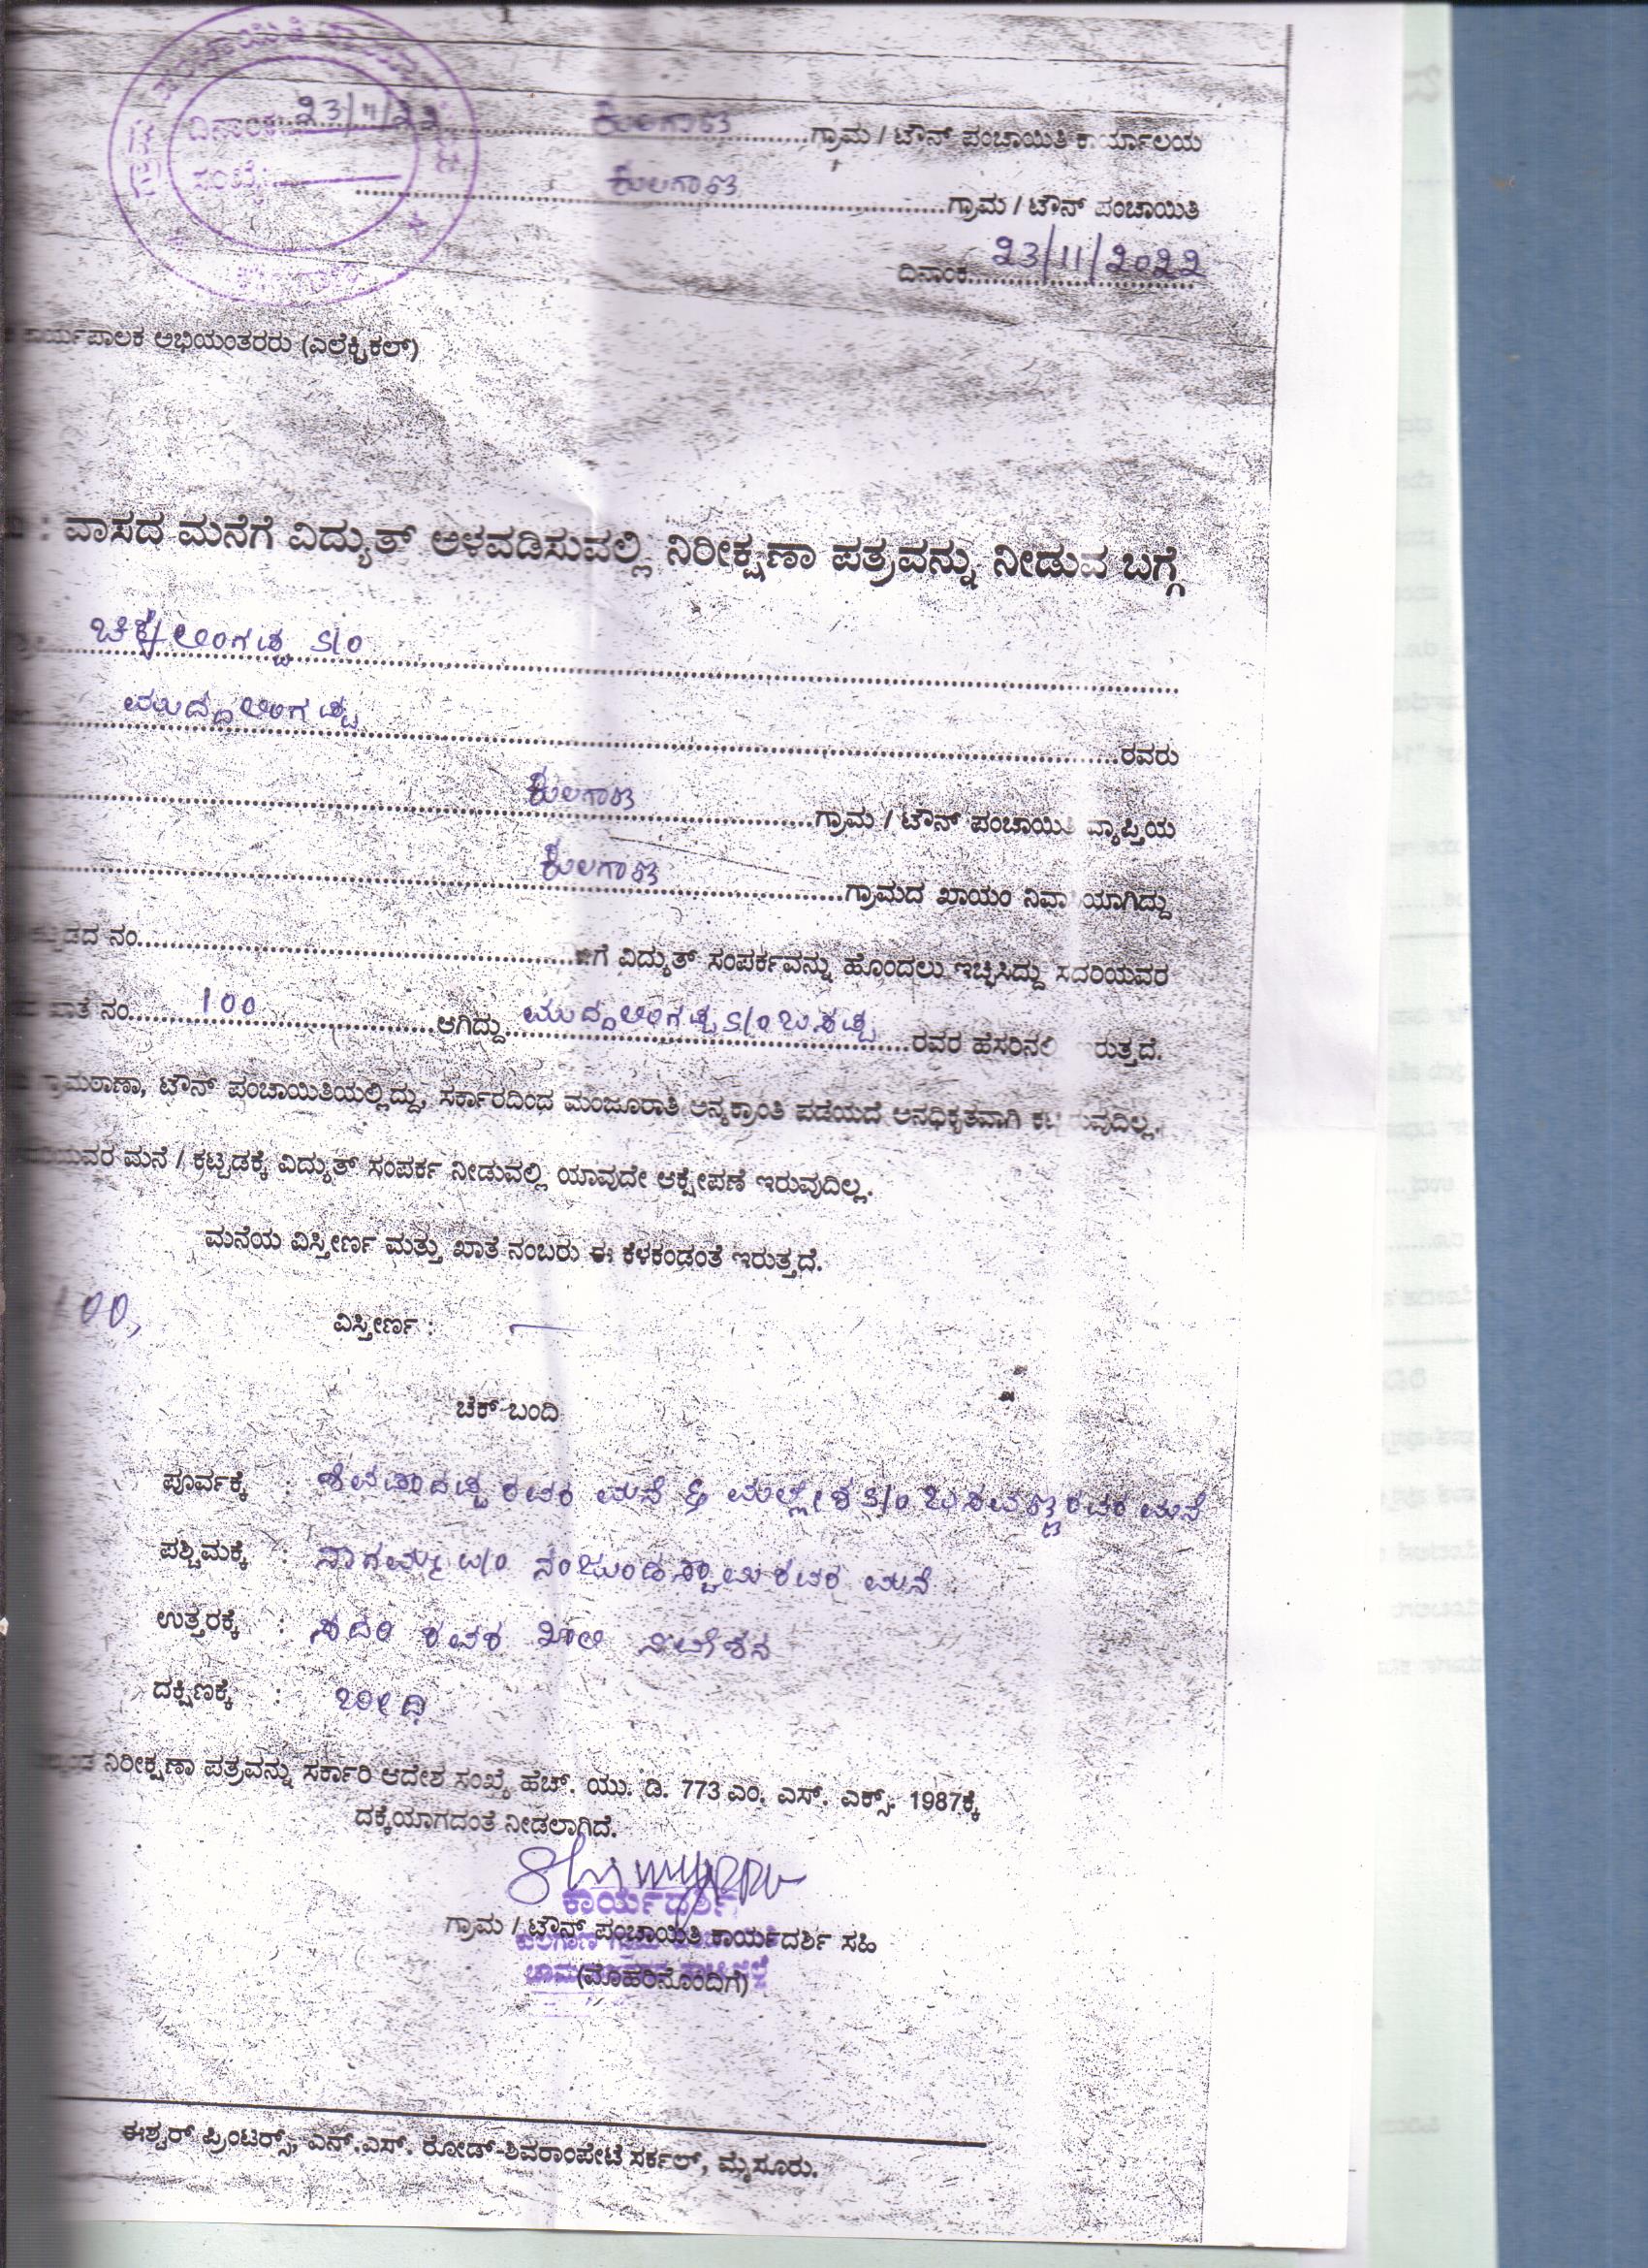 ದಿನಾಂಕ: 23/11/22
ಸಂಖ್ಯೆ:
ಕುಲಗಾಣ ಗ್ರಾಮ / ಟೌನ್ ಪಂಚಾಯಿತಿ ಕಾರ್ಯಾಲಯ
ಕುಲಗಾಣ ಗ್ರಾಮ / ಟೌನ್ ಪಂಚಾಯಿತಿ
ದಿನಾಂಕ 23/11/2022
ಕಾರ್ಯಪಾಲಕ ಅಭಿಯಂತರರು (ಎಲೆಕ್ಟ್ರಿಕಲ್)
: ವಾಸದ ಮನೆಗೆ ವಿದ್ಯುತ್ ಅಳವಡಿಸುವಲ್ಲಿ ನಿರೀಕ್ಷಣಾ ಪತ್ರವನ್ನು ನೀಡುವ ಬಗ್ಗೆ
S/o
ಮುದ್ದಲಿಂಗಶೆಟ್ಟಿ ರವರು
ಕುಲಗಾಣ ಗ್ರಾಮ / ಟೌನ್ ಪಂಚಾಯಿತಿ ವ್ಯಾಪ್ತಿಯ
ಕುಲಗಾಣ ಗ್ರಾಮದ ಖಾಯಂ ನಿವಾ ಯಾಗಿದ್ದು
ನಂ. ಗೆ ವಿದ್ಯುತ್ ಸಂಪರ್ಕವನ್ನು ಹೊಂದಲು ಇಚ್ಛಿಸಿದ್ದು ಸದರಿಯವರ
ಖಾತೆ ನಂ. 100 ಆಗಿದ್ದು ಮುದ್ದಲಿಂಗಶೆಟ್ಟಿ S/o ರವರ ಹೆಸರಿನಲ್ಲಿ ರುತ್ತದೆ.
ಗ್ರಾಮಠಾಣಾ, ಟೌನ್ ಪಂಚಾಯಿತಿಯಲ್ಲಿದ್ದು, ಸರ್ಕಾರದಿಂದ ಮಂಜೂರಾತಿ ಅನ್ಯಕ್ರಾಂತಿ ಪಡೆಯದೆ ಅನಧಿಕೃತವಾಗಿ ರುವುದಿಲ್ಲ.
ಮನೆ / ಕಟ್ಟಡಕ್ಕೆ ವಿದ್ಯುತ್ ಸಂಪರ್ಕ ನೀಡುವಲ್ಲಿ ಯಾವುದೇ ಆಕ್ಷೇಪಣೆ ಇರುವುದಿಲ್ಲ.
ಮನೆಯ ವಿಸ್ತೀರ್ಣ ಮತ್ತು ಖಾತೆ ನಂಬರು ಈ ಕೆಳಕಂಡಂತೆ ಇರುತ್ತದೆ.
100, ವಿಸ್ತೀರ್ಣ : —
ಚೆಕ್ ಬಂದಿ
ಪೂರ್ವಕ್ಕೆ : ರವರ ಮನೆ & ಮಲ್ಲೇಶ S/o ಬಸವಣ್ಣ ರವರ ಮನೆ
ಪಶ್ಚಿಮಕ್ಕೆ : ನಾಗಮ್ಮ W/o ನಂಜುಂಡಸ್ವಾಮಿ ರವರ ಮನೆ
ಉತ್ತರಕ್ಕೆ : ಸದರಿ ರವರ ಖಾಲಿ ನಿವೇಶನ
ದಕ್ಷಿಣಕ್ಕೆ : ಬೀದಿ
ನಿರೀಕ್ಷಣಾ ಪತ್ರವನ್ನು ಸರ್ಕಾರಿ ಆದೇಶ ಸಂಖ್ಯೆ ಹೆಚ್. ಯು. ಡಿ. 773 ಎಂ. ಎಸ್. ಎಕ್ಸ್. 1987ಕ್ಕೆ
ದಕ್ಕೆಯಾಗದಂತೆ ನೀಡಲಾಗಿದೆ.
ಕಾರ್ಯದರ್ಶಿ
ಗ್ರಾಮ / ಟೌನ್ ಪಂಚಾಯಿತಿ ಕಾರ್ಯದರ್ಶಿ ಸಹಿ
(ಮೊಹರಿನೊಂದಿಗೆ)
ಈಶ್ವರ್ ಪ್ರಿಂಟರ್ಸ್, ಎನ್.ಎಸ್. ರೋಡ್-ಶಿವರಾಂಪೇಟೆ ಸರ್ಕಲ್, ಮೈಸೂರು.